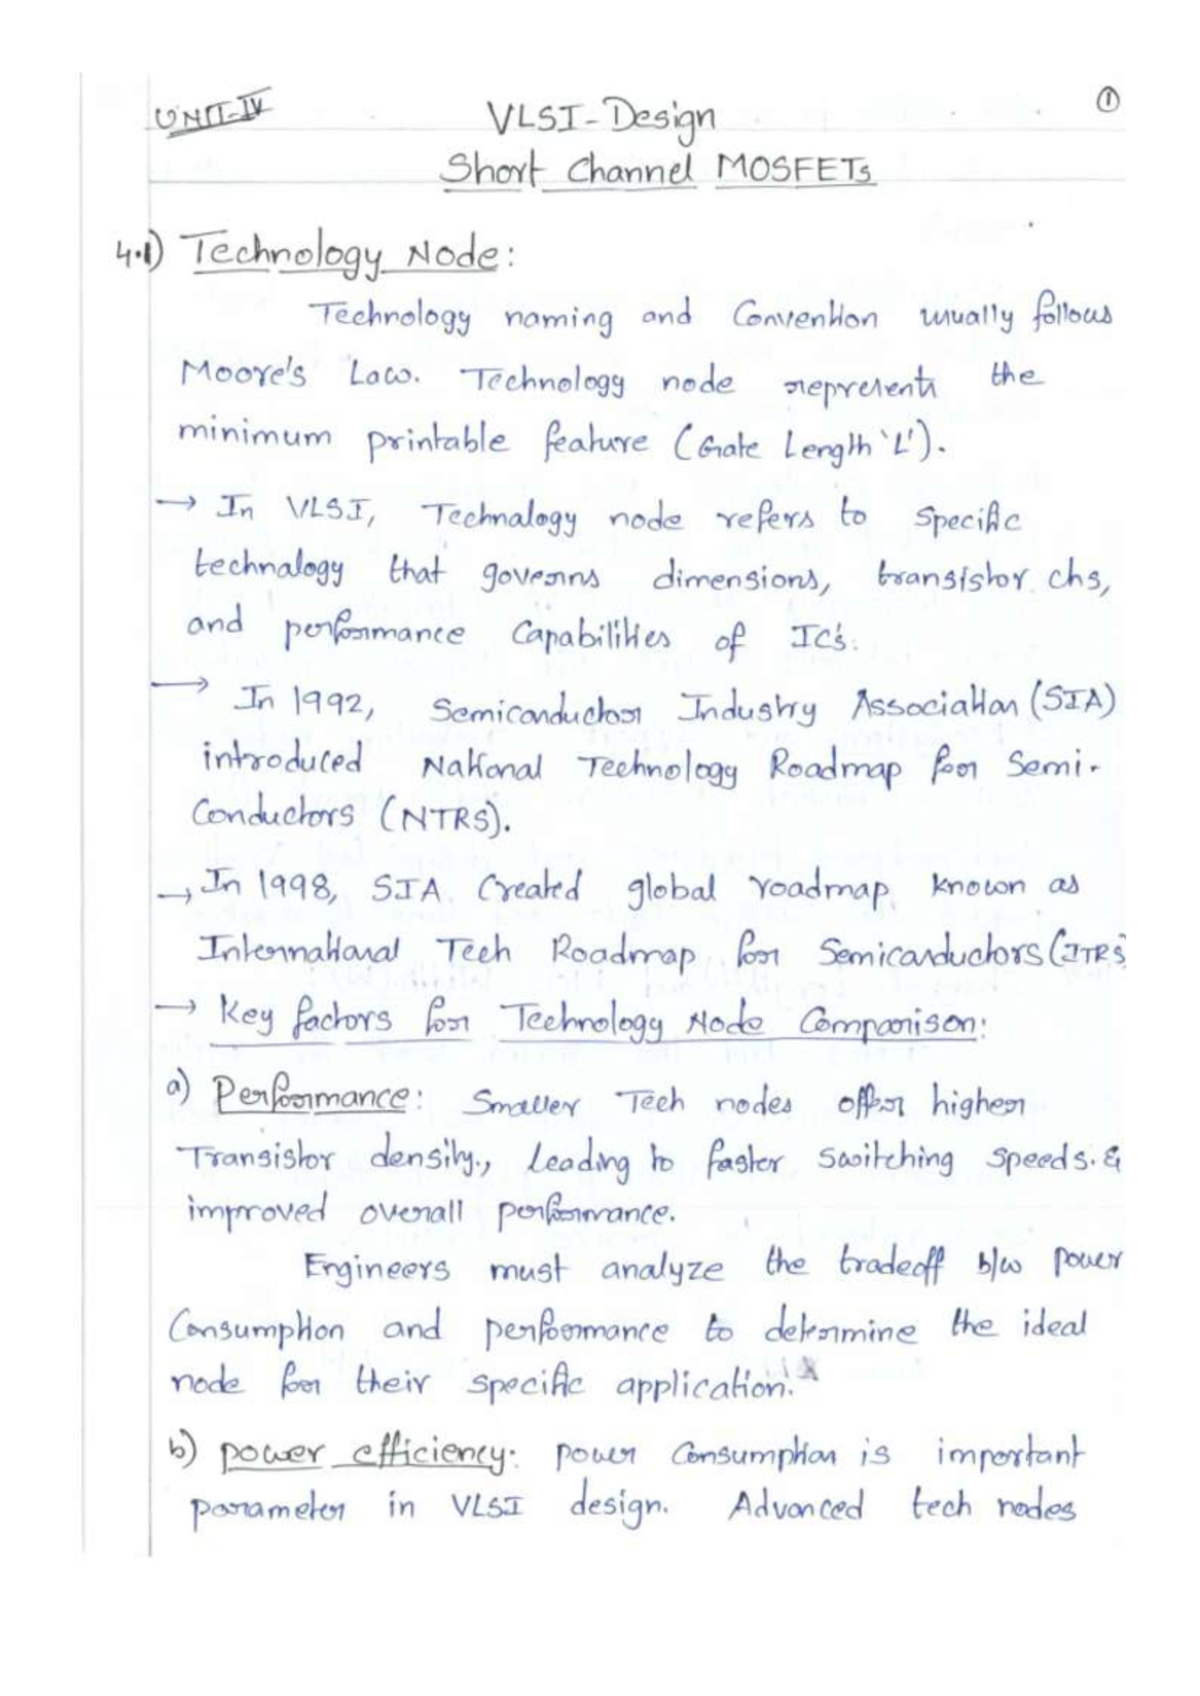 UNIT-IV
VLSI-Design
1
Short Channel MOSFETs
4.1) Technology Node:
Technology naming and Convention usually follows
Moore's Law. Technology node represents the
minimum printable feature (Gate Length 'L').
→ In VLSI, Technalogy node refers to specific
technalogy that governs dimensions, transistor chs,
and performance Capabilities of IC's.
→ In 1992, Semiconductor Industry Association (SIA)
introduced National Technology Roadmap for Semi-
Conductors (NTRS).
→ In 1998, SIA Created global roadmap known as
International Tech Roadmap for Semiconductors (ITRS)
→ Key factors for Technology Node Comparison:
a) Performance: Smaller Tech nodes offer higher
Transistor density., leading to faster switching speeds. &
improved overall performance.
Engineers must analyze the tradeoff b/w power
Consumption and performance to determine the ideal
node for their specific application.
b) power efficiency: power Consumption is important
parameter in VLSI design. Advanced tech nodes